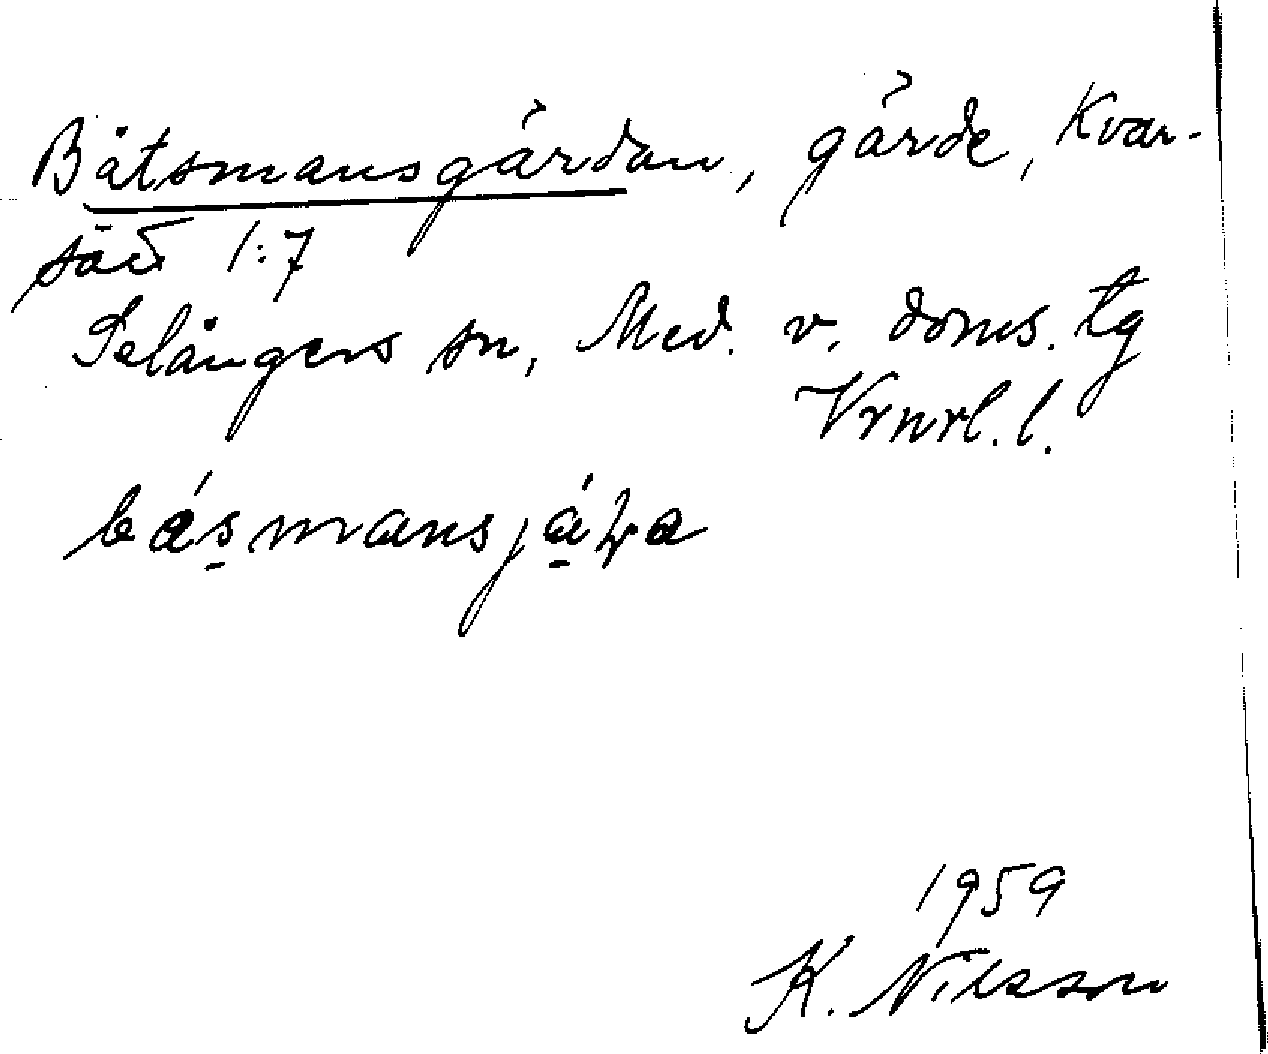 Båtsmansgårdan, gärde, Kvar-
sätt 1:7
Selångers sn, Med. v. doms. tg
Vrnrl. l.
básmansjáḷa
1959
K. Nilsson